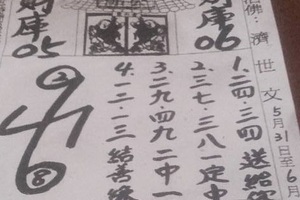 佛：濟世文
5月31日至6月
財庫06
財庫05
1.二四.三四送給
2.三七.三八一定中
3.二九四九二中一
4.一二.一三結善